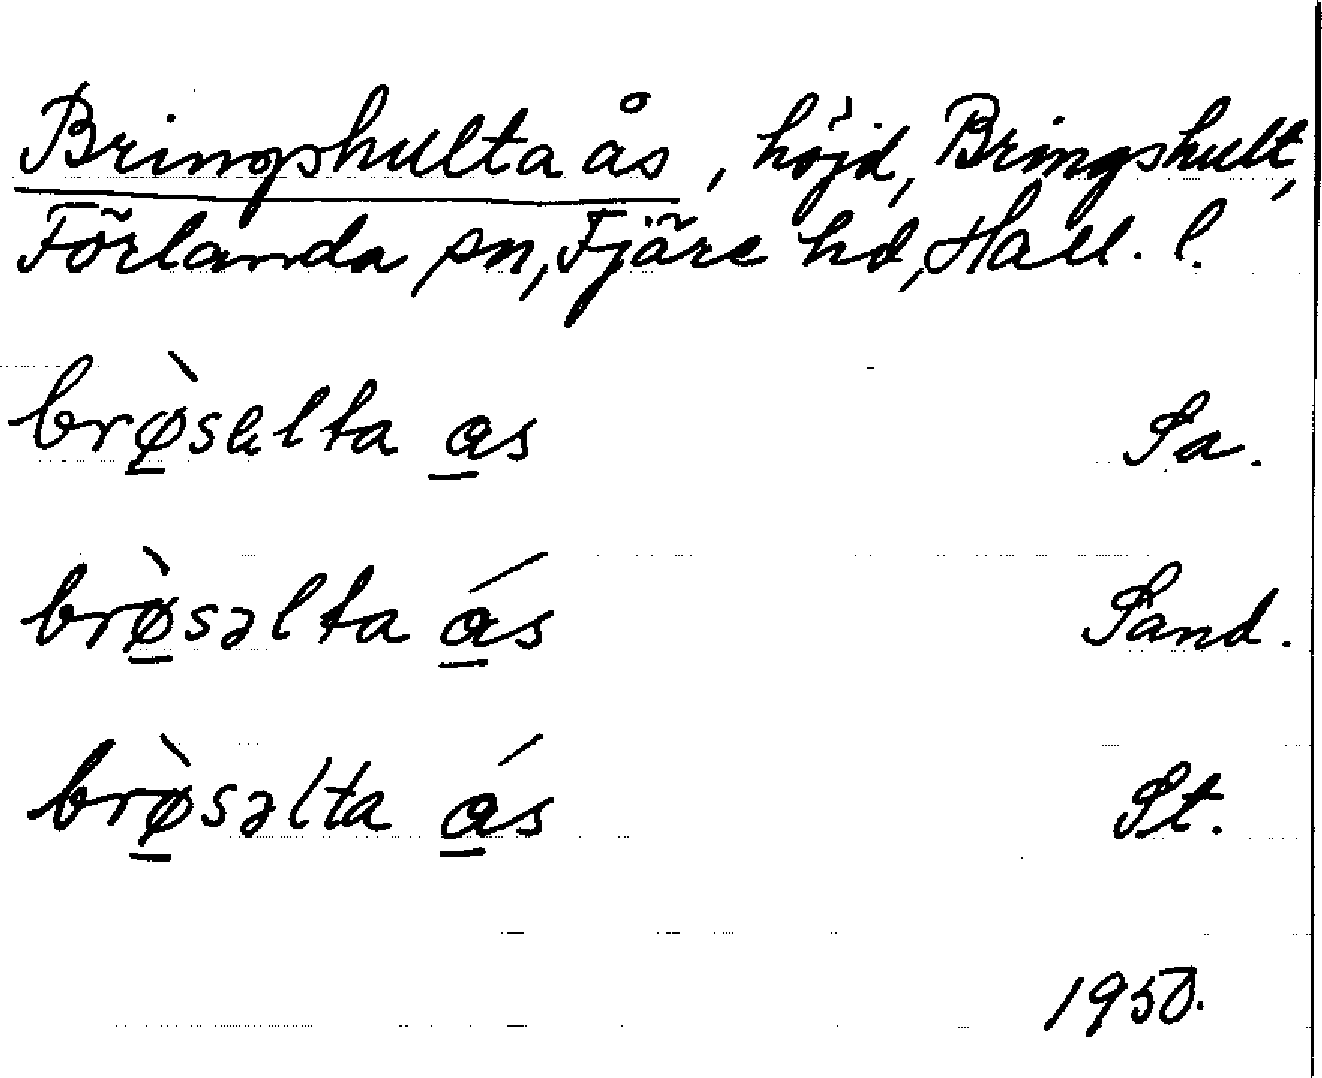 Bringshulta ås, höjd, Bringshult,
Förlanda sn, Fjäre hd, Hall. l.
brø̠̀səlta a̠s Sa.
brø̠̀səlta á̠s Sand.
brø̠̀səlta á̠s St.
1950.